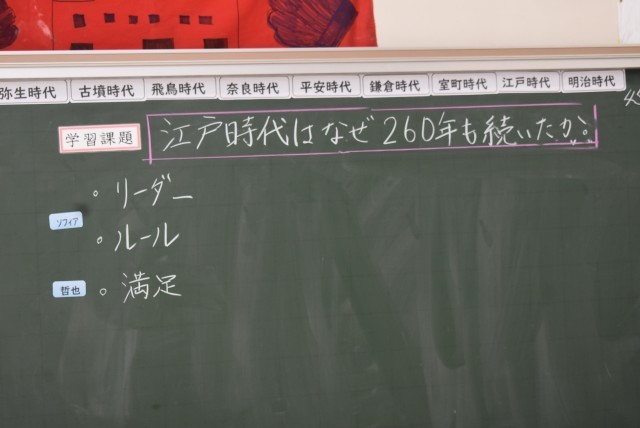 弥生時代 古墳時代 飛鳥時代 奈良時代 平安時代 鎌倉時代 室町時代 江戸時代 明治時代
学習課題 江戸時代はなぜ260年も続いたか。
・リーダー
ソフィア
・ルール
哲也 ・満足